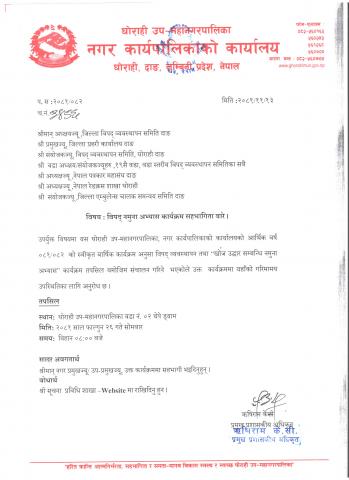 घोराही उप-महानगरपालिका
नगर कार्यपालिकाको कार्यालय
घोराही, दाङ, लुम्बिनी प्रदेश, नेपाल
प. सः २०८१/०८२
मिति :२०८१/११/१३
च.नं.
श्रीमान् अध्यक्षज्यू ,जिल्ला विपद् व्यवस्थापन समिति दाङ
श्री प्रमुखज्यू, जिल्ला प्रहरी कार्यालय दाङ
श्री संयोजकज्यू, विपद् व्यवस्थापन समिति, घोराही दाङ
श्री वडा अध्यक्ष/संयोजकज्यूहरु ,१९सै वडा, वडा स्तरीय विपद् व्यवस्थापन समितिका सबै
श्री अध्यक्षज्यू ,नेपाल पत्रकार महासंघ दाङ
श्री अध्यक्षज्यू ,नेपाल रेडक्रस शाखा घोराही
श्री संयोजकज्यू ,जिल्ला एम्बुलेन्स चालक समन्वय समिति दाङ
विषय : विपद् नमुना अभ्यास कार्यक्रम सहभागिता बारे।
उपर्युक्त विषयमा यस घोराही उप-महानगरपालिका, नगर कार्यपालिकाको कार्यालयको आर्थिक बर्ष
०८१/०८२ को स्वीकृत बार्षिक कार्यक्रम अनुसार विपद् व्यवस्थापन तथा "खोज उद्धार सम्वन्धि नमुना
अभ्यास" कार्यक्रम तपसिल बमोजिम संचालन गरिने भएकोले उक्त कार्यक्रममा यहाँको गरिमामय
उपस्थितिका लागि अनुरोध छ।
तपसिल
स्थानः घोराही उप-महानगरपालिका वडा नं. ०२ थेपे ड्वाम
मितिः २०८१ साल फाल्गुन २६ गते सोमवार
समयः बिहान ०८:०० बजे
सादर अवगतार्थ
श्रीमान् नगर प्रमुखज्यू/ उप-प्रमुखज्यू, उक्त कार्यक्रममा सहभागी भइदिनुहुन।
बोधार्थ
श्री सूचना प्रविधि शाखा - Website मा राखिदिनु हुन।
ऋषिराम के.सी.
प्रमुख प्रशासकीय अधिकृत
ऋषिराम के.सी.
प्रमुख प्रशासकीय अधिकृत